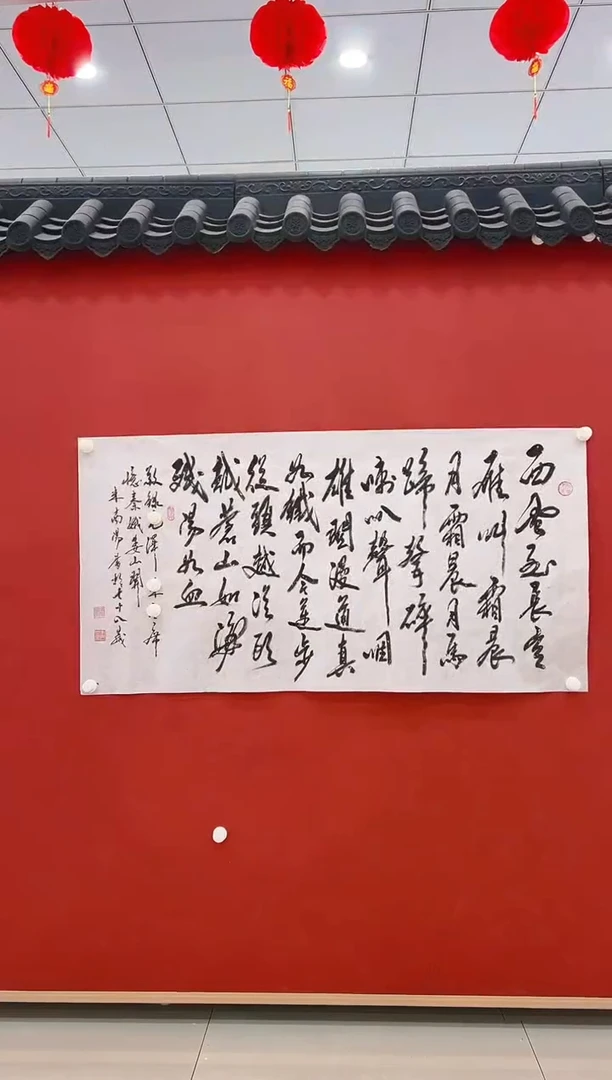 西風烈長空
雁叫霜晨
月霜晨月馬
蹄聲碎
喇叭聲咽
雄關漫道真
如鐵而今邁步
從頭越從頭
越蒼山如海
殘陽如血
敬錄毛澤東主席
憶秦娥婁山關
南書於七十八歲